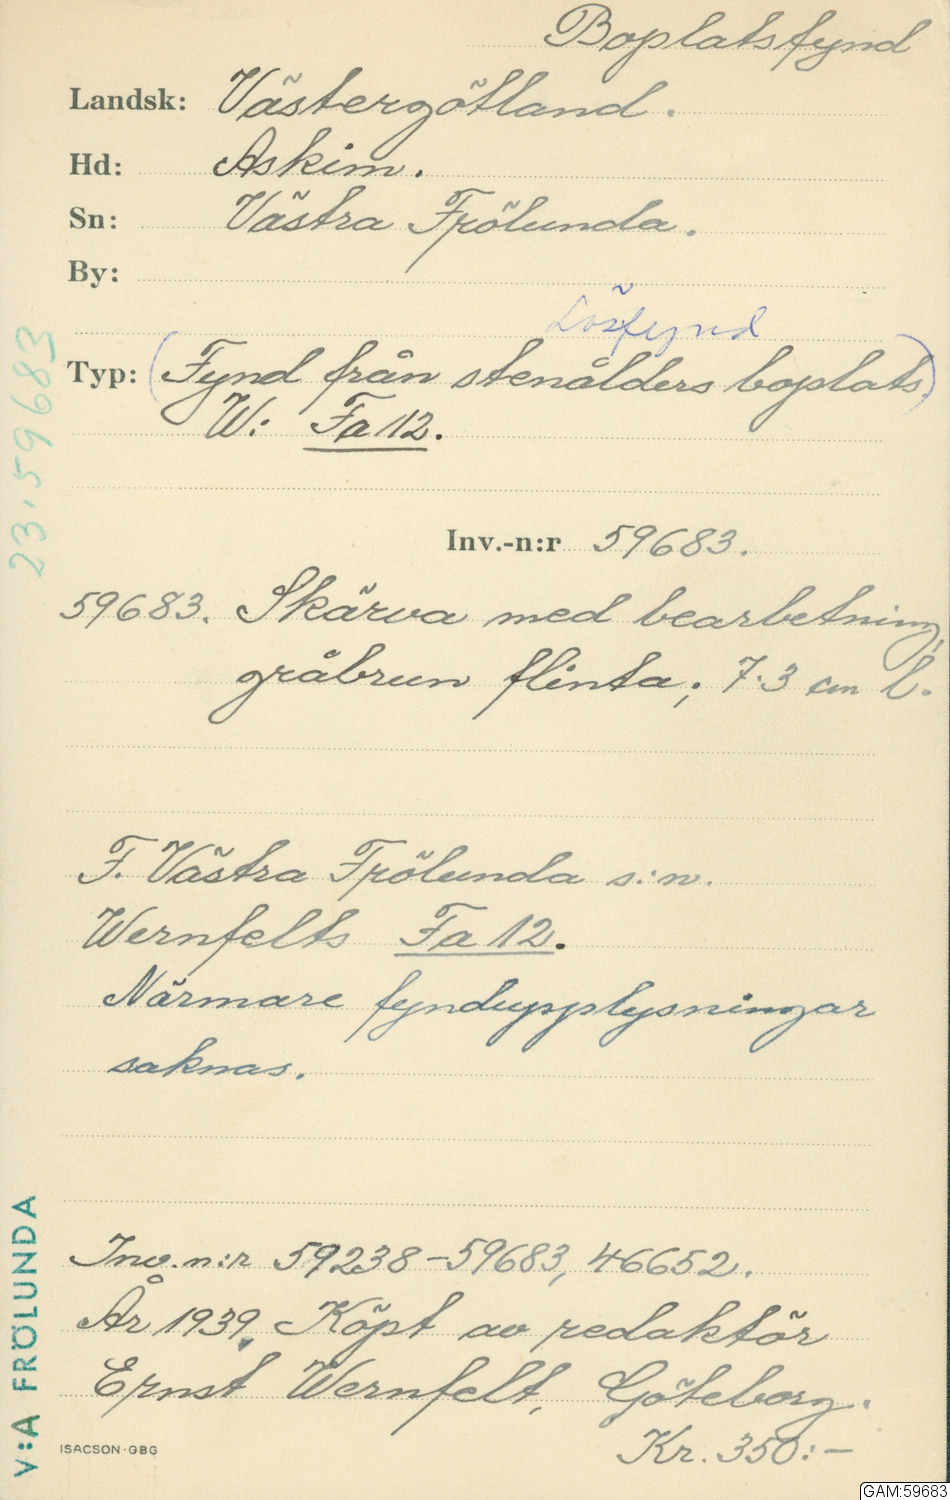 Boplatsfynd
Landsk: Västergötland.
Hd: Askim.
Sn: Västra Frölunda.
By:
Lösfynd
Typ: (Fynd från stenålders boplats.)
W: Fa 12.
23.59683
Inv.-n:r 59683.
59683. Skärva med bearbetning,
gråbrun flinta; 7.3 cm l.
F. Västra Frölunda s:n.
Wernfelts Fa 12.
Närmare fyndupplysningar
saknas.
Inv.n:r 59238-59683, 46652.
År 1939. Köpt av redaktör
Ernst Wernfelt, Göteborg.
Kr. 350:-
V:A FRÖLUNDA
ISACSON·GBG
GAM:59683